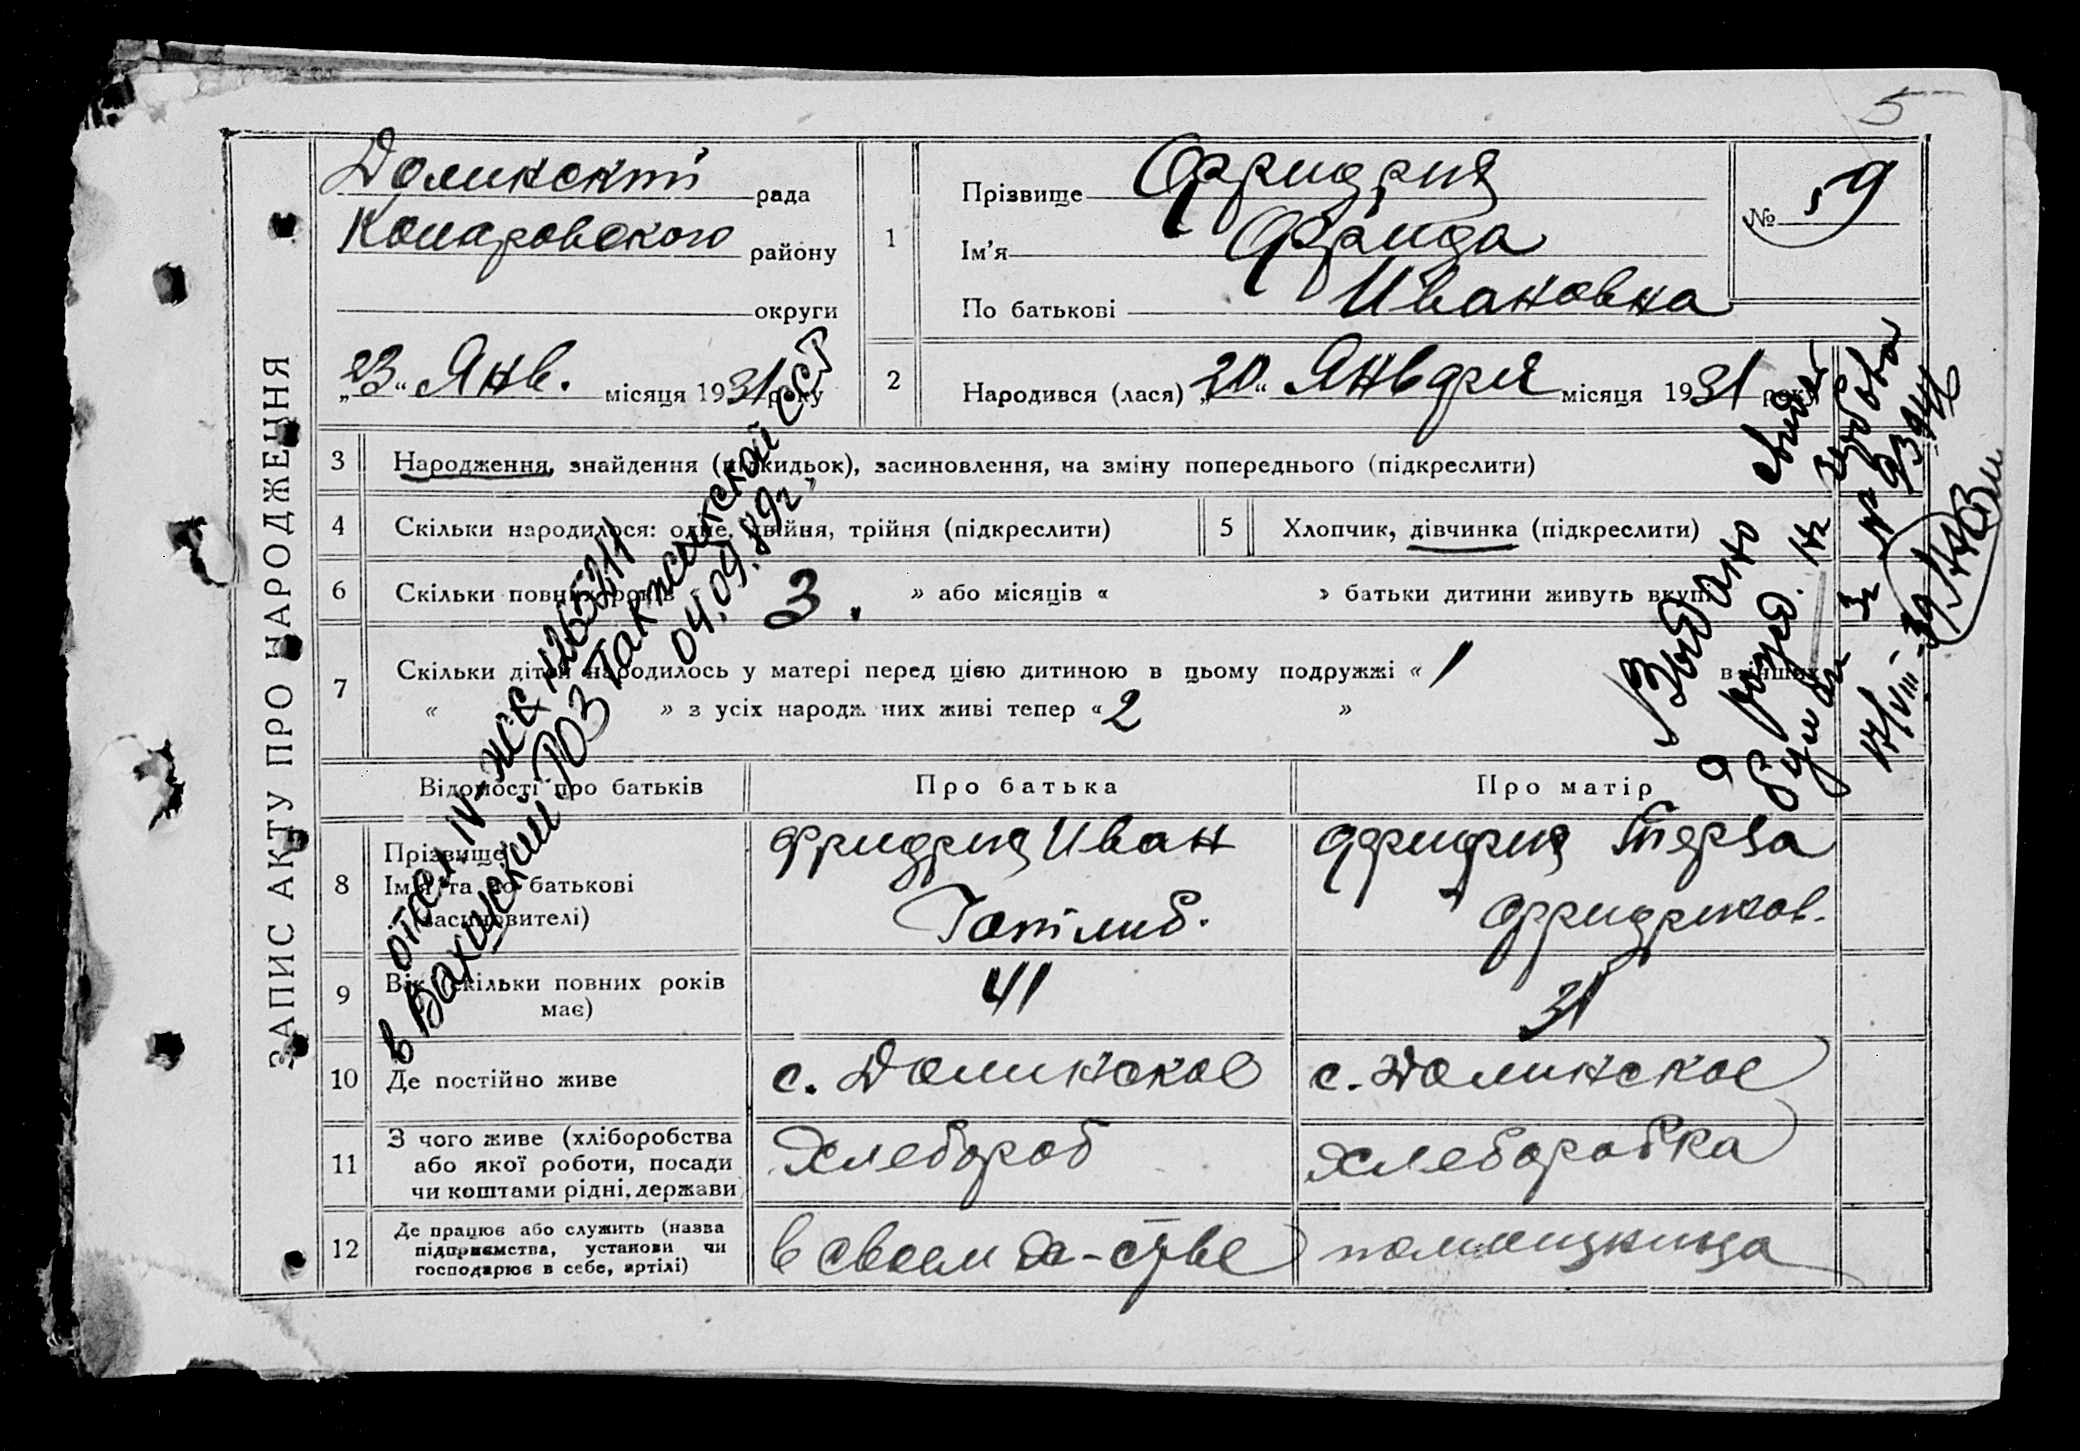 5
ЗАПИС АКТУ ПРО НАРОДЖЕННЯ
Долинский рада
Комаровского району
округи
„23“ Янв. місяця 1931 року
1
Прізвище Фридрих
Ім'я Фрида
По батькові Ивановна
№ 59
2
Народився (лася) „20“ Января місяця 1931 року
3 Народження, знайдення (підкидьок), засиновлення, на зміну попереднього (підкреслити)
4 Скільки народилося: одне, двійня, трійня (підкреслити)
5 Хлопчик, дівчинка (підкреслити)
6 Скільки повних років 3. » або місяців « » батьки дитини живуть вкупі
7 Скільки дітей народилось у матері перед цією дитиною в цьому подружжі « 1 в інших
« » з усіх народж них живі тепер « 2 »
Відомості про батьків Про батька Про матір
8 Прізвище
Ім'я та по батькові
(засиновителі)
Фридрих Иван
Готлиб.
Фридрих
Фридрихов.
9 Вік (скільки повних років має)
41
31
10 Де постійно живе
с. Долинское
с. Долинское
11 З чого живе (хліборобства
або якої роботи, посади
чи коштами рідні, держави)
Хлебороб
Хлеборобка
12 Де працює або служить (назва
підприємства, установи чи
господарює в себе, артілі)
в своем х-стве
помощница
IV-ЖС №265211
в Вахшский РОЗ Таджикской ССР
04.09.89г.
Выдано
о рожд.
№ 93944